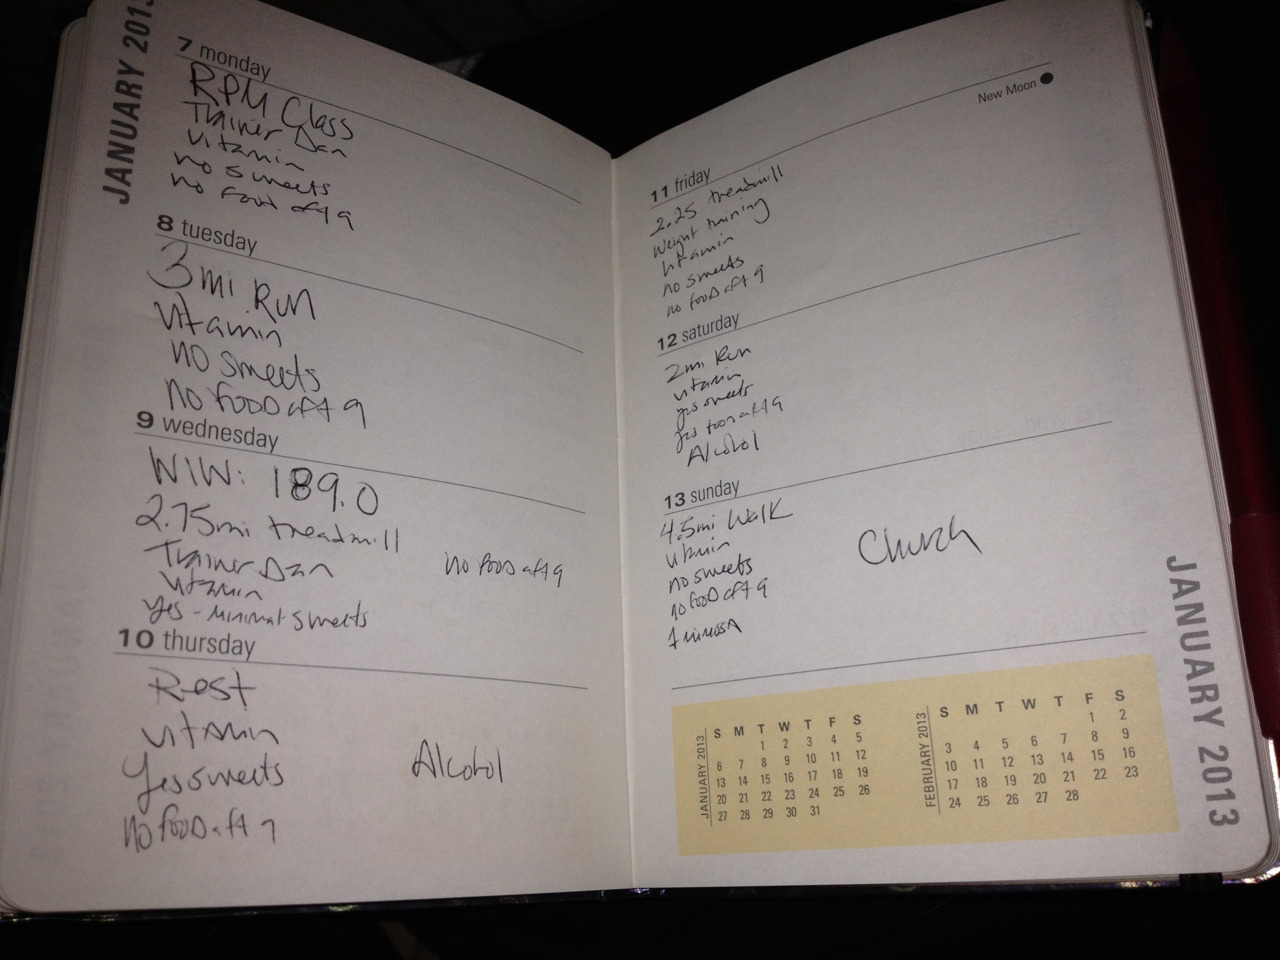 JANUARY 2013
7 monday
RPM Class
Trainer Dan
vitamin
no sweets
no food aft 9
8 tuesday
3 mi Run
vitamin
no sweets
no food aft 9
9 wednesday
WIW: 189.0
2.75mi treadmill
Trainer Dan
vitamin
yes - minimal sweets
no food aft 9
10 thursday
Rest
vitamin
yes sweets
no food aft 9
Alcohol
New Moon
11 friday
2.25 treadmill
Weight training
vitamin
no sweets
no food aft 9
12 saturday
2mi Run
vitamin
yes sweets
yes food aft 9
Alcohol
13 sunday
4.5mi Walk
vitamin
no sweets
no food aft 9
1 mimosa
Church
JANUARY 2013
S M T W T F S
1 2 3 4 5
6 7 8 9 10 11 12
13 14 15 16 17 18 19
20 21 22 23 24 25 26
27 28 29 30 31
FEBRUARY 2013
S M T W T F S
1 2
3 4 5 6 7 8 9
10 11 12 13 14 15 16
17 18 19 20 21 22 23
24 25 26 27 28
JANUARY 2013